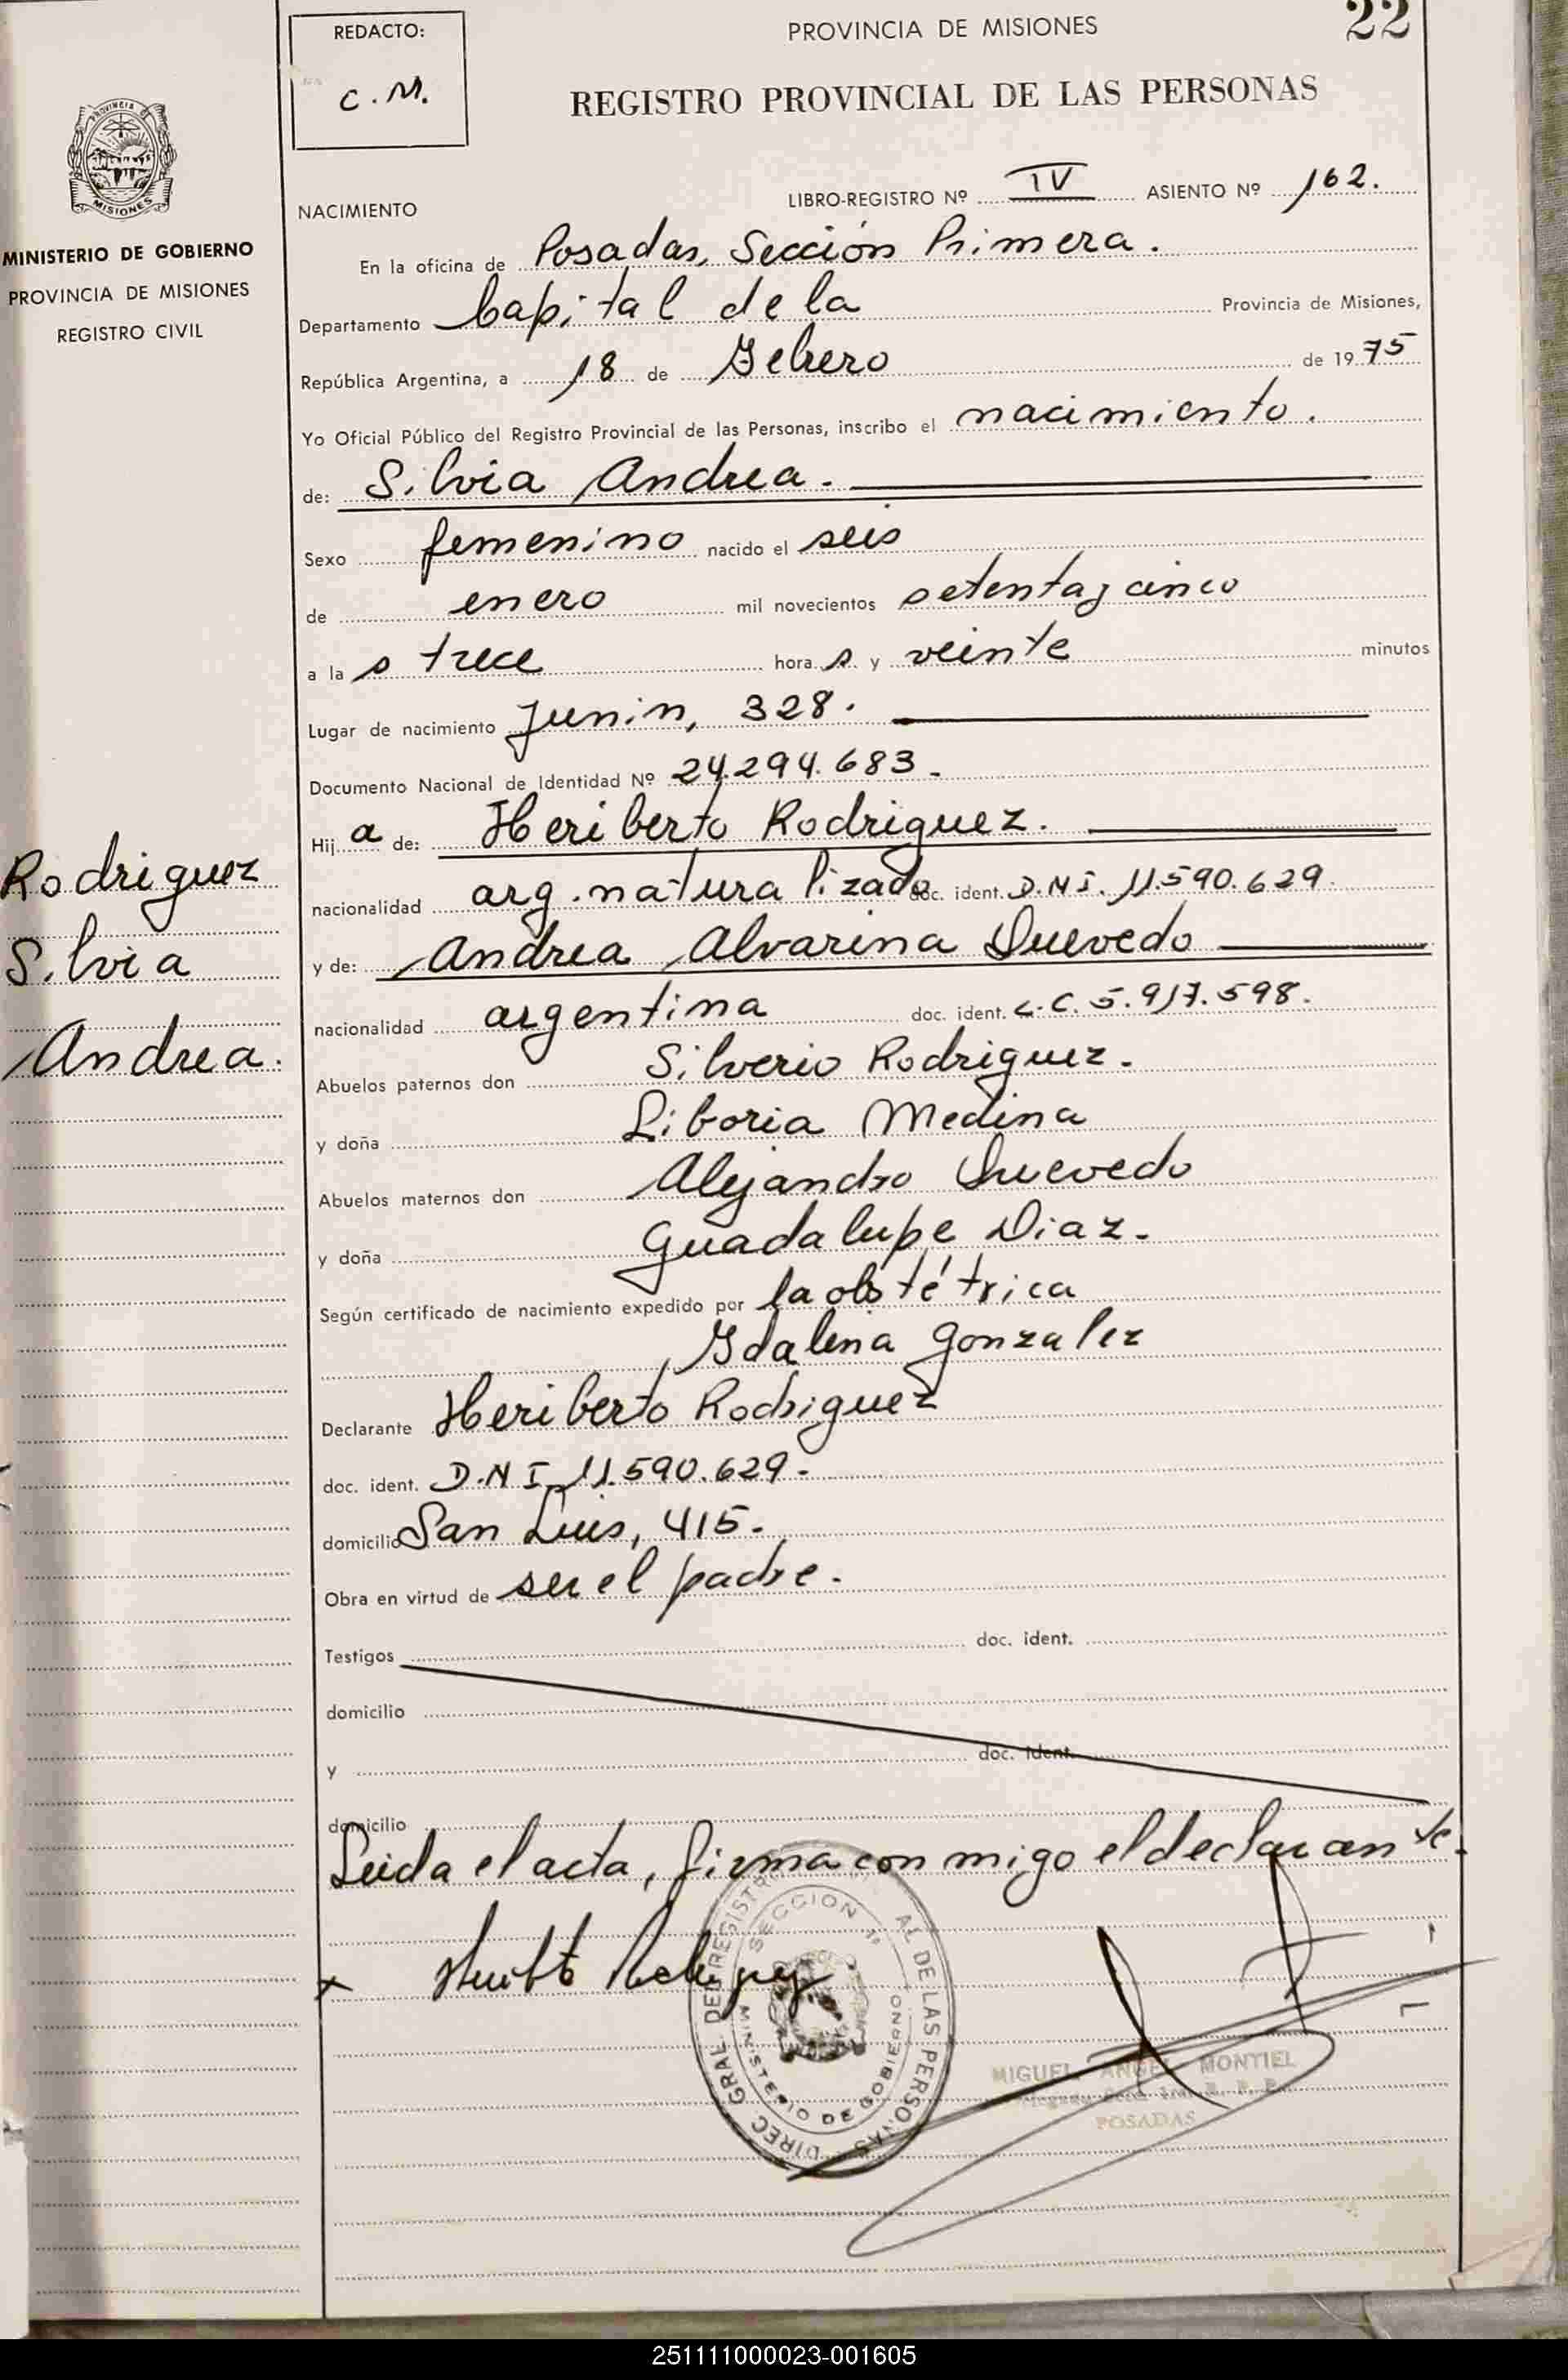 22
REDACTO:
C. M.
PROVINCIA DE MISIONES
REGISTRO PROVINCIAL DE LAS PERSONAS
PROVINCIA
MISIONES
MINISTERIO DE GOBIERNO
PROVINCIA DE MISIONES
REGISTRO CIVIL
LIBRO-REGISTRO Nº IV ASIENTO Nº 162.
NACIMIENTO
En la oficina de Posadas, Sección Primera.
Departamento Capital de la Provincia de Misiones,
República Argentina, a 18 de Febrero de 1975
Yo Oficial Público del Registro Provincial de las Personas, inscribo el nacimiento.
de: Silvia Andrea.
Sexo femenino nacido el seis
de enero mil novecientos setenta y cinco
a la s trece hora s y veinte minutos
Lugar de nacimiento Junin, 328.
Documento Nacional de Identidad Nº 24.294.683.
Hij a de: Heriberto Rodriguez.
nacionalidad arg. naturalizado doc. ident. D.N.I. 11.590.629.
y de: Andrea Alvarina Quevedo
nacionalidad argentina doc. ident. L.C. 5.917.598.
Abuelos paternos don Silverio Rodriguez.
y doña Liboria Medina
Abuelos maternos don Alejandro Quevedo
y doña Guadalupe Diaz.
Según certificado de nacimiento expedido por la obstétrica
Idalina Gonzalez
Declarante Heriberto Rodriguez
doc. ident. D.N.I. 11.590.629.
domicilio San Luis, 415.
Obra en virtud de ser el padre.
Testigos doc. ident.
domicilio
y doc. ident.
domicilio
Leida el acta, firma conmigo el declarante.
Rodriguez
Silvia
Andrea.
x
DIREC. GRAL. DEL REGISTRO AL DE LAS PERSONAS
SECCION 1ª
MINISTERIO DE GOBIERNO
MIGUEL ANGEL MONTIEL
POSADAS
251111000023-001605